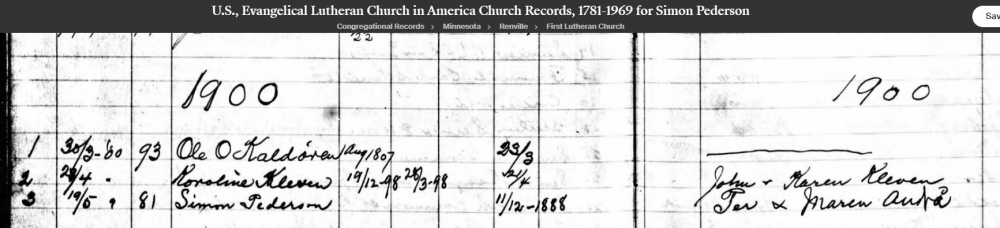 U.S., Evangelical Lutheran Church in America Church Records, 1781-1969 for Simon Pederson
Congregational Records > Minnesota > Renville > First Lutheran Church
Sav
22
1900 1900
1 30/3-'00 93 Ole O Kaldören Aug 1807 23/3
2 28/4 " Karoline Kleven 19/12-98 28/3-98 2/4 John & Karen Kleven
3 19/5 " 81 Simon Pederson 11/12-1888 Per & Maren